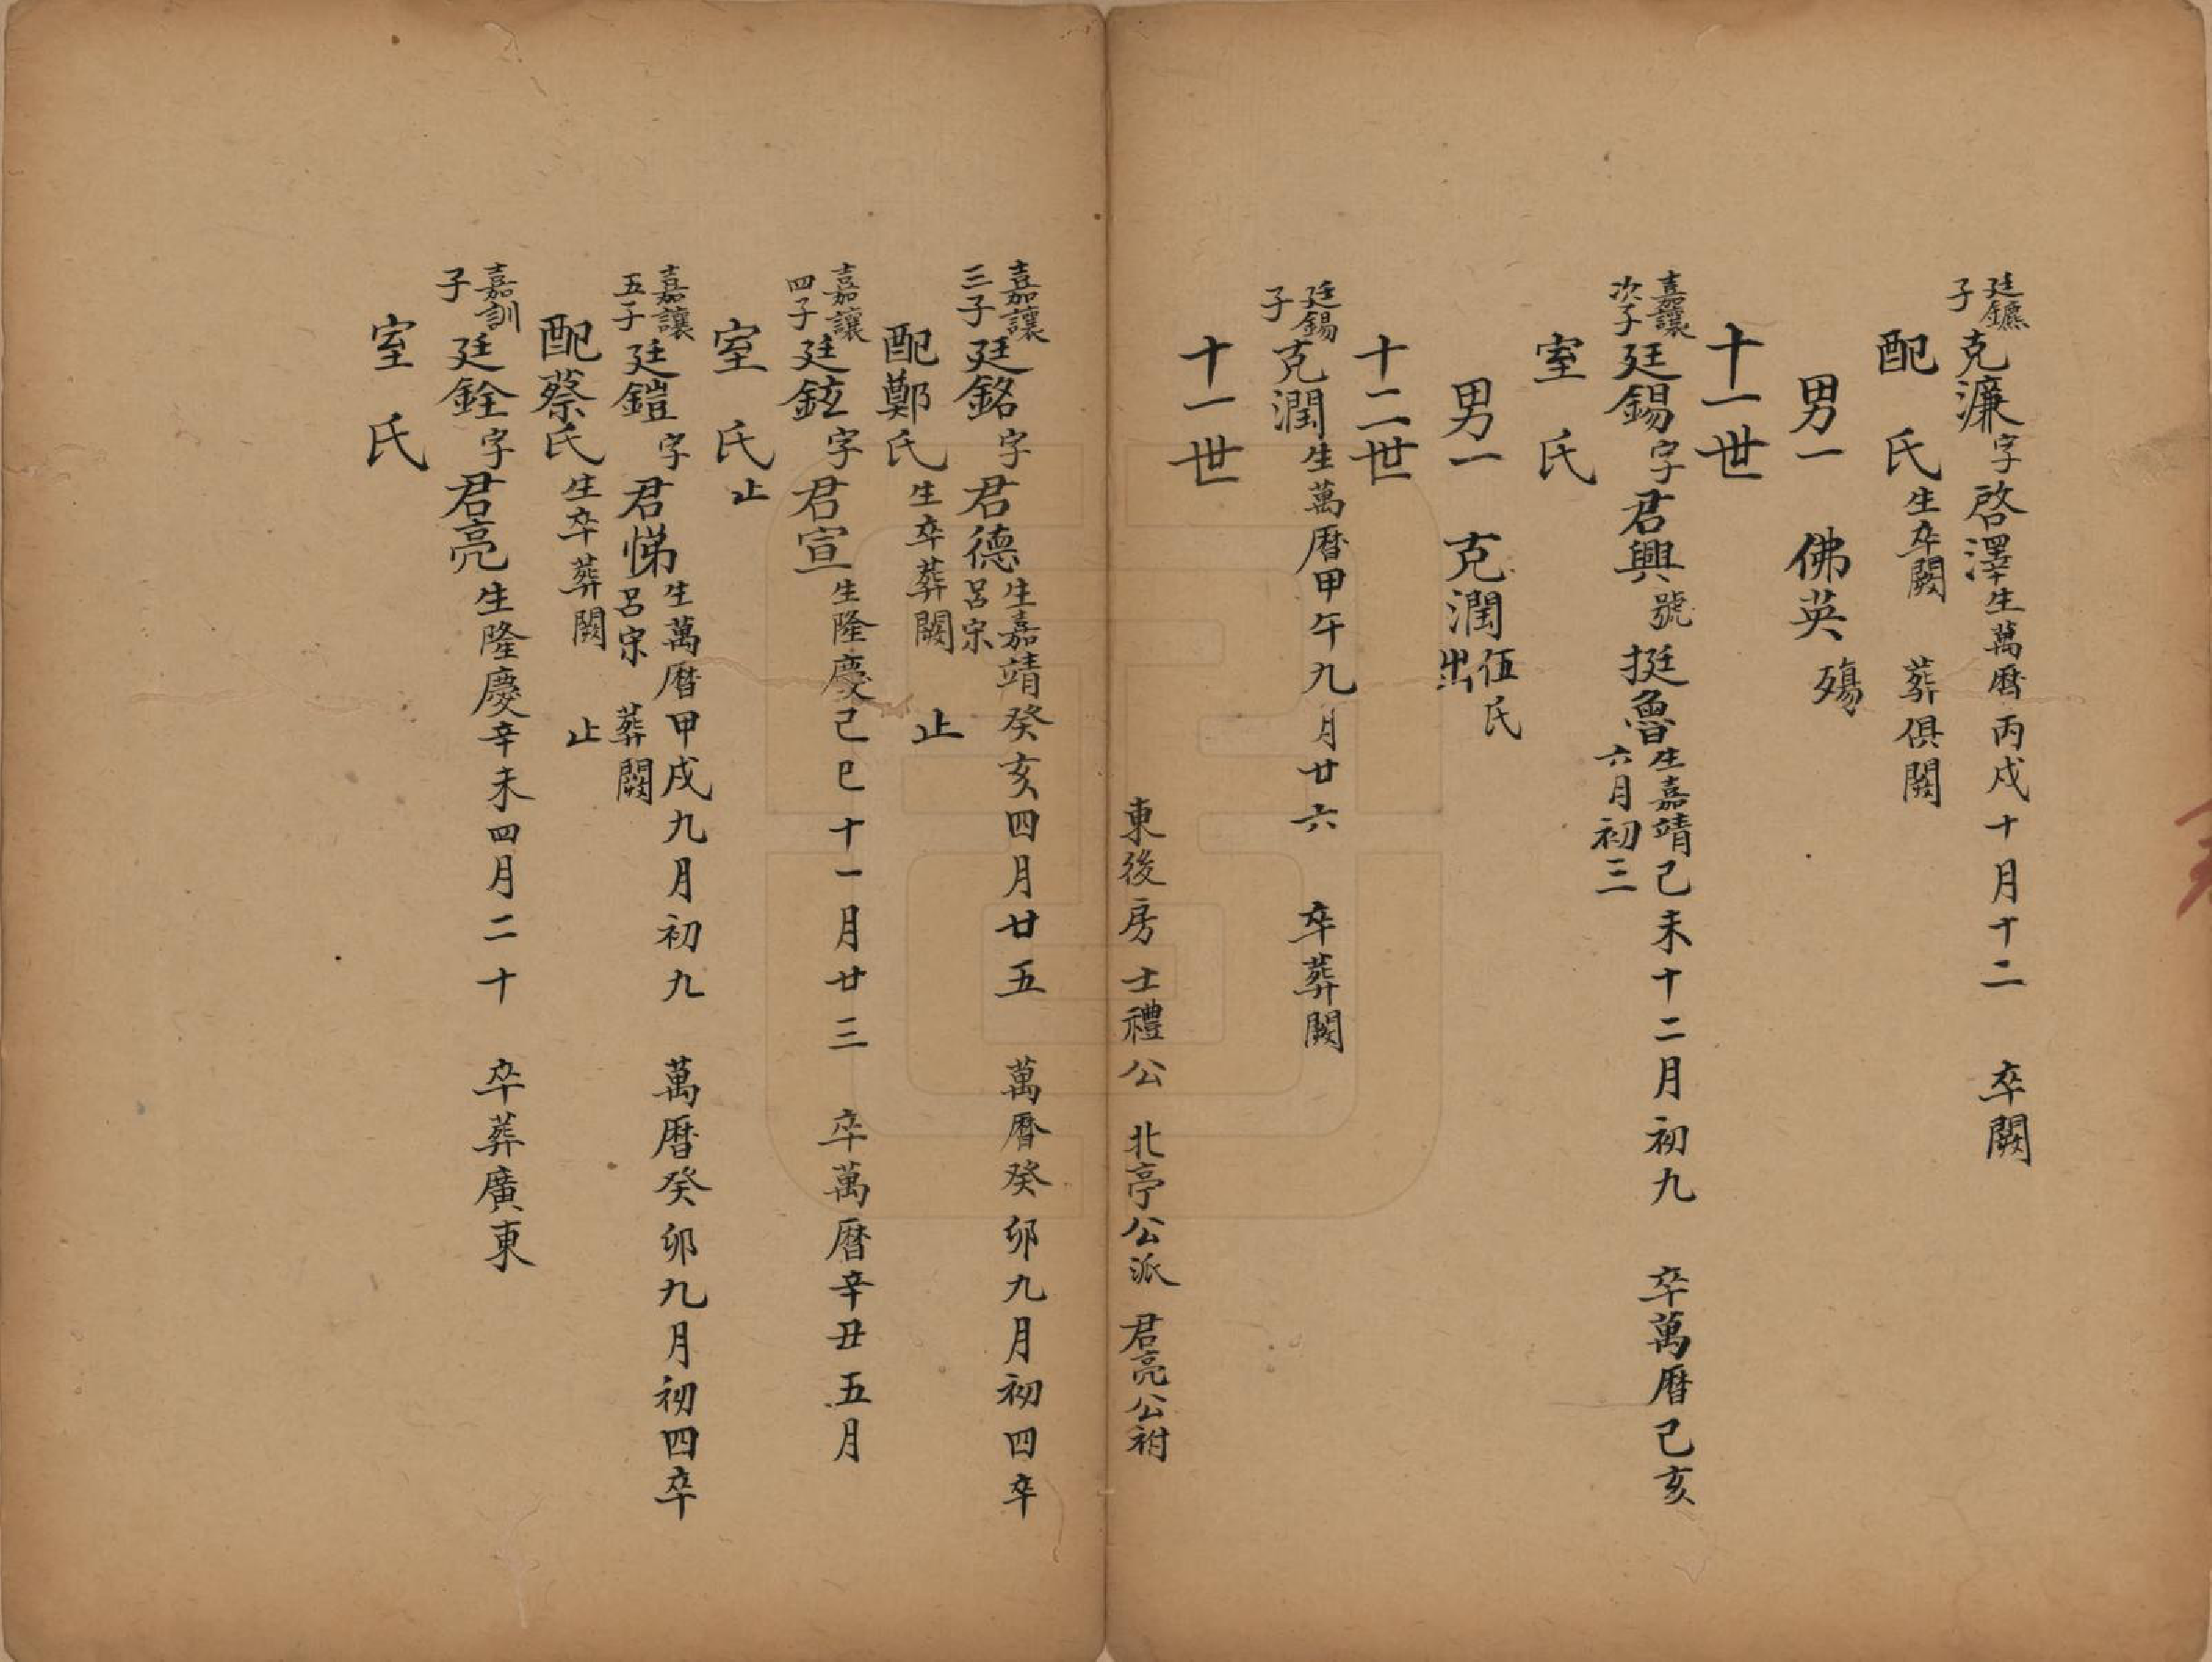 廷鑣子克濂字啓澤生萬曆丙戌十月十二 卒闕
配 氏生卒闕 葬俱闕
男一 佛英 殤
十一世
嘉讓次子廷錫字君興號挺魯生嘉靖己未十二月初九 卒萬曆己亥六月初三
室 氏
男一 克潤伍氏出
十二世
廷錫子克潤生萬曆甲午九月廿六 卒葬闕
十一世
東後房士禮公 北亭公派 君亮公祔
嘉讓三子廷銘字君德生嘉靖癸亥四月廿五 萬曆癸卯九月初四卒呂宋
配鄭氏生卒葬闕 止
嘉讓四子廷鉉字君宣生隆慶己巳十一月廿三 卒萬曆辛丑五月
室 氏止
嘉讓五子廷鎧字君悌生萬曆甲戌九月初九 萬曆癸卯九月初四卒呂宋 葬闕
配蔡氏生卒葬闕 止
嘉訓子廷銓字君亮生隆慶辛未四月二十 卒葬廣東
室 氏